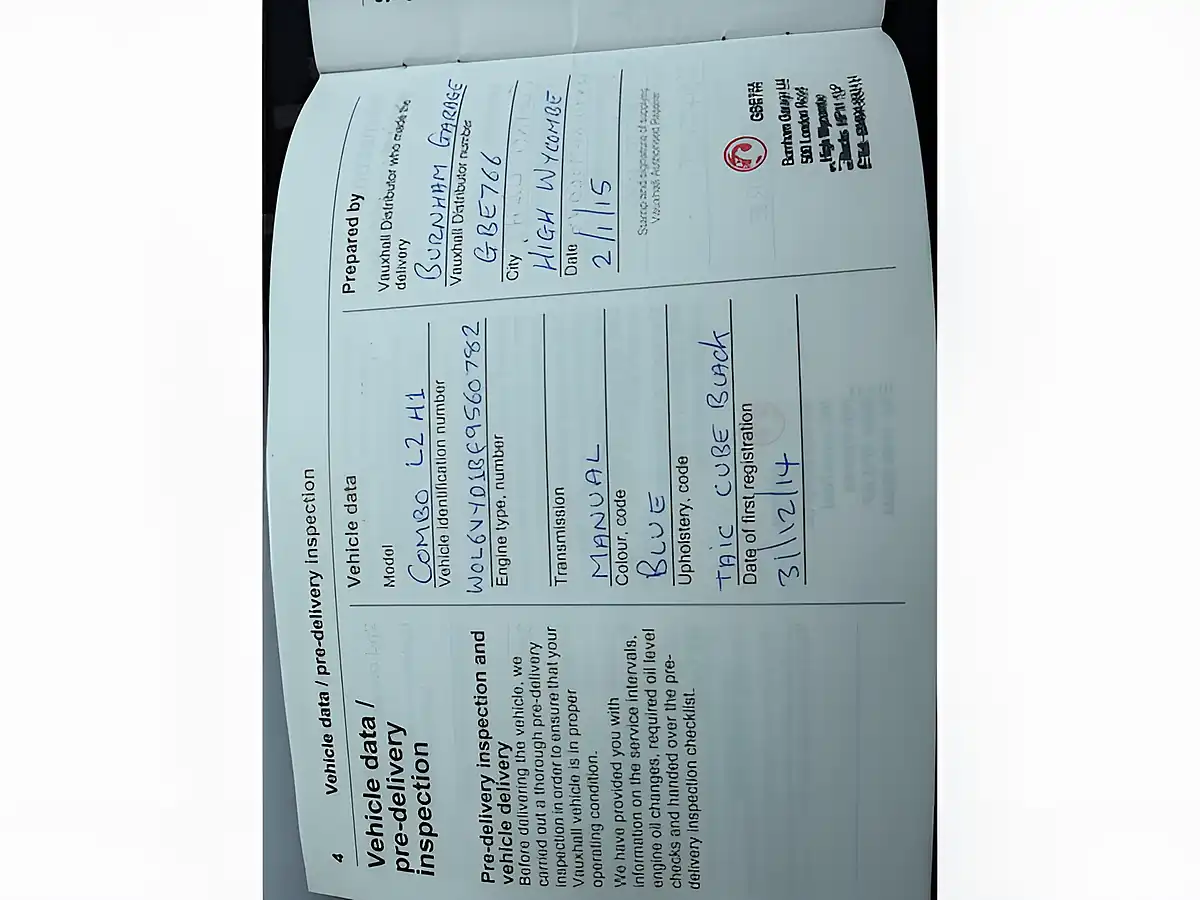 4
Vehicle data / pre-delivery inspection
Vehicle data /
pre-delivery
inspection
Pre-delivery inspection and
vehicle delivery
Before delivering the vehicle, we
carried out a thorough pre-delivery
inspection in order to ensure that your
Vauxhall vehicle is in proper
operating condition.
We have provided you with
information on the service intervals,
engine oil changes, required oil level
checks and handed over the pre-
delivery inspection checklist.
Vehicle data
Model
COMBO L2 H1
Vehicle identification number
Engine type, number
Transmission
MANUAL
Colour, code
BLUE
Upholstery, code
TAIC CUBE BLACK
Date of first registration
31/12/14
Prepared by
Vauxhall Distributor who made the
delivery
BURNHAM GARAGE
Vauxhall Distributor number
GBE766
City
HIGH WYCOMBE
Date
2/1/15
Stamp and signature of supplying
Vauxhall Authorised Repairer
Burnham Garage Ltd
500 London Road
High Wycombe